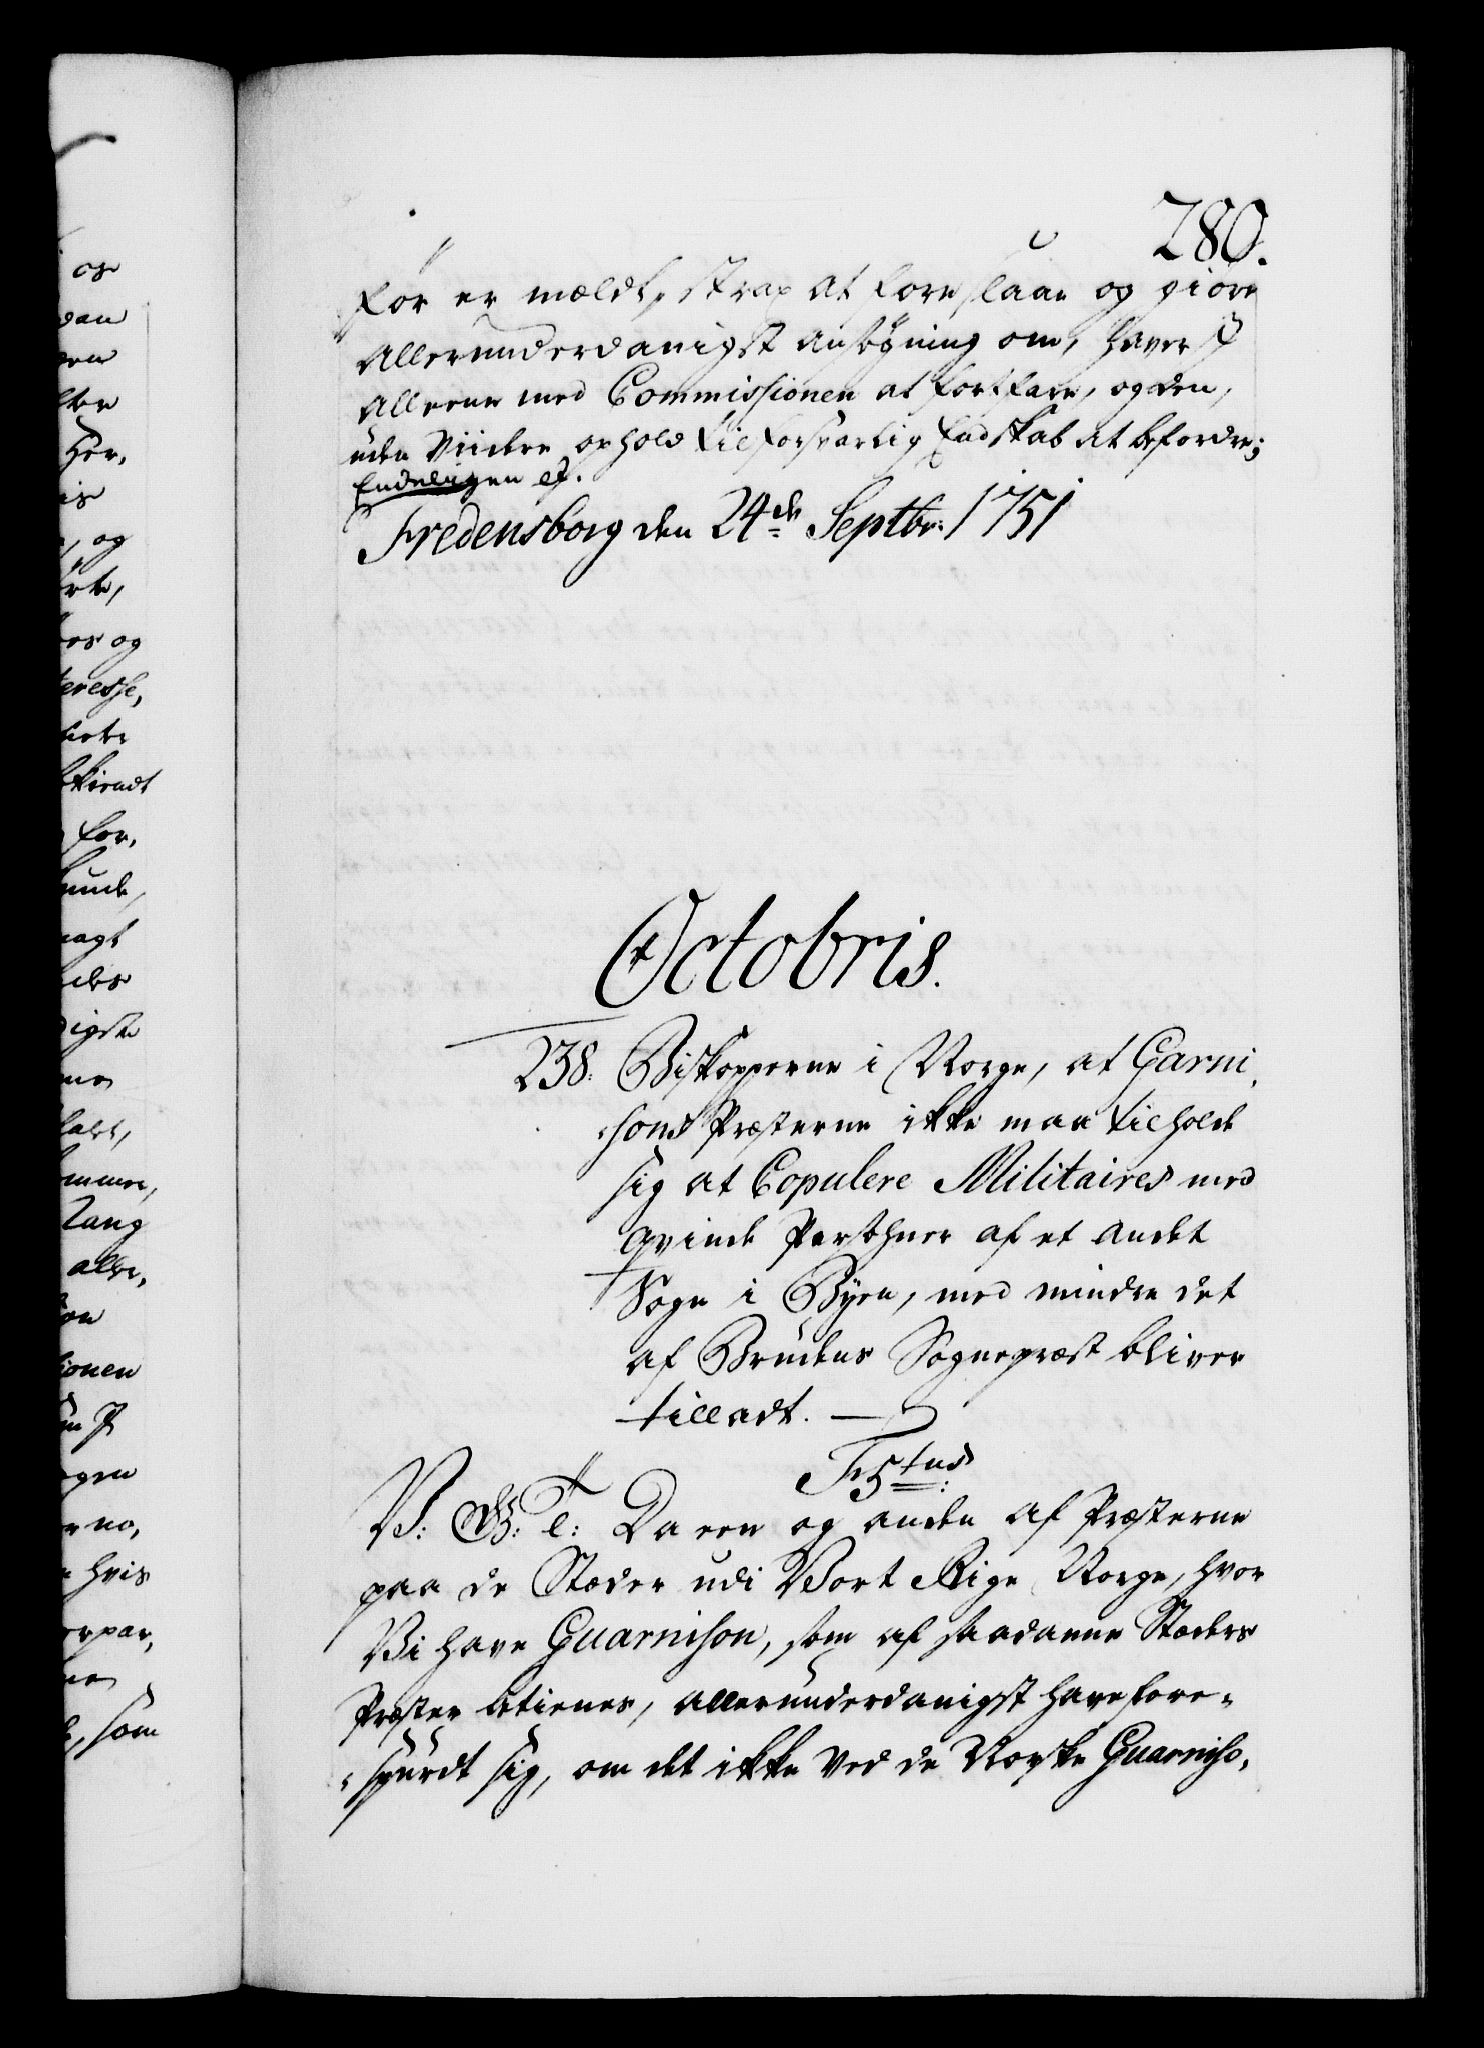 280.
før er mældt, strax at foreslaae og giøre
Allerunderdanigst ansøgning om, haver I
Alleene med Commissionen at fortfare, og den,
uden Viidere ophold til forsvarlig Endskab at befordre;
Endeligen
Fredensborg den 24de Septbr: 1751
Octobris.
238. Biskopperne i Norge, at Garni,
sons Præsterne ikke maa tilholde
sig at Copulere Militaires med
qvinde Persohner af et andet
Sogn i Byen, med mindre det
af Brudens Sognepræst bliver
tilladt.
V: G: T: Da een og anden af Præsterne
paa de Stæder udi Vort Rige Norge, hvor
Vi have Guarnison, som af saadanne Stæders
Præster betienes, allerunderdanigst have fore-
spurdt sig, om det ikke ved de Norske Guarniso,